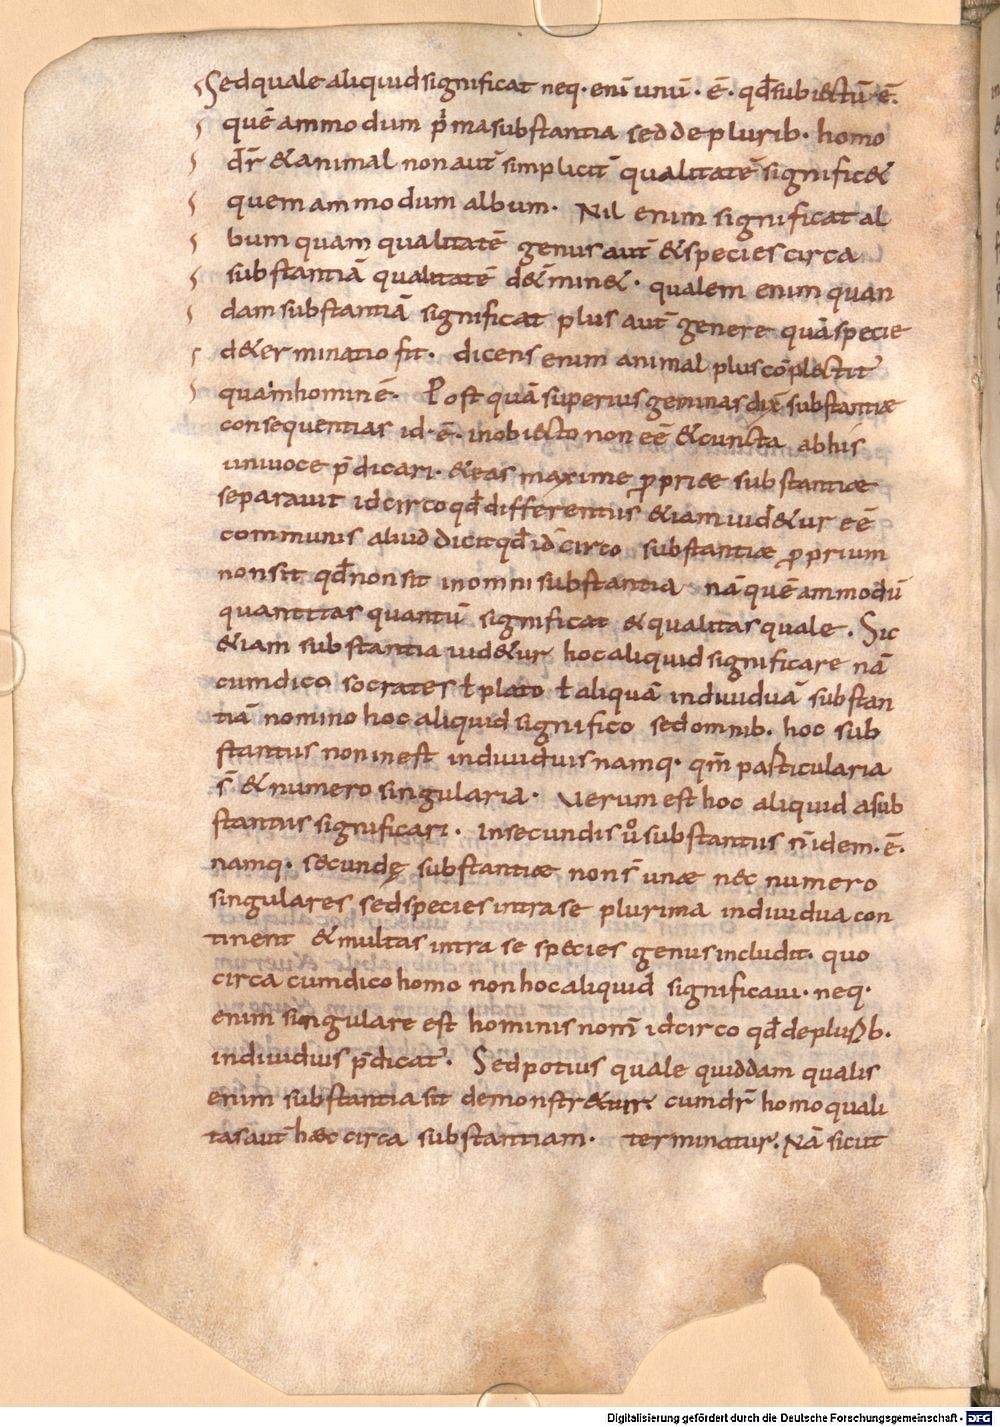 Sed quale aliquid significat neq· enī unū· ē· qđ subiectū ē·
quē ammodum p̄ma substantia sed de plurib· homo
dr̄ & animal non aut̄ simplicit̄ qualitatē signific&
quemammodum album· Nil enim significat al
bum quam qualitatē genus aut̄ & species circa
substantiā qualitatē d&̄min&· qualem enim quan
dam substantiā significat plus aut̄ genere quā specie
d&erminatio fit· dicens enim animal plus cōplectit᷑
quam hominē· Post quā superius geminas dix̄ substantiæ
consequentias id·ē· in obiecto non eē & cuncta ab his
univoce p̄dicari· & eas maxime ꝓpriæ substantiæ
separavit idcirco qđ differentiis &iam uid&ur eē
communis aliud dicit qđ idcirco substantiæ ꝓprium
non sit qđ non sit in omni substantia nā quē ammodū
quantitas quantū significat & qualitas quale. Sic
&iam substantia uid&ur hoc aliquid significare nā
cum dico socrates ł plato ł aliquā indiuiduā substan
tiā nomino hoc aliquid significo sed omnib· hoc sub
stantiis non inest indiuiduis namq· qm̄ particularia
s̄ & numero singularia· Uerum est hoc aliquid a sub
stantiis significari· in secundis ů substantiis n̄ idem·ē·
namq· secundę substantiæ non s̄ unæ nec numero
singulares sed species intra se plurima indiuidua con
tinent & multas intra se species genus includit· quo
circa cum dico homo non hoc aliquid significaui· neq·
enim singulare est hominis nom̄ idcirco qđ de pluꝝb·
indiuiduis p̄dicat᷑· Sed potius quale quiddam qualis
enim substantia sit demonstr&ur· cum dr̄ homo quali
tas aut̄ hæc circa substantiam· terminatur· Nā sicut
Digitalisierung gefördert durch die Deutsche Forschungsgemeinschaft - DFG